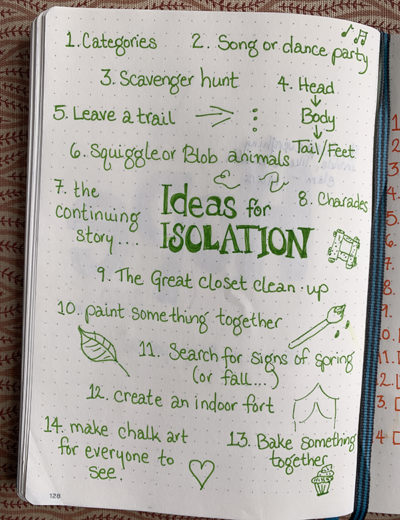 1. Categories
2. Song or dance party
3. Scavenger hunt
4. Head
Body
Tail/Feet
5. Leave a trail
6. Squiggle or Blob animals
7. the
continuing
story....
Ideas for
ISOLATION
8. Charades
9. The Great closet clean-up
10. paint something together
11. Search for signs of spring
(or fall...)
12. create an indoor fort
13. Bake something
together
14. make chalk art
for everyone to
see.
128